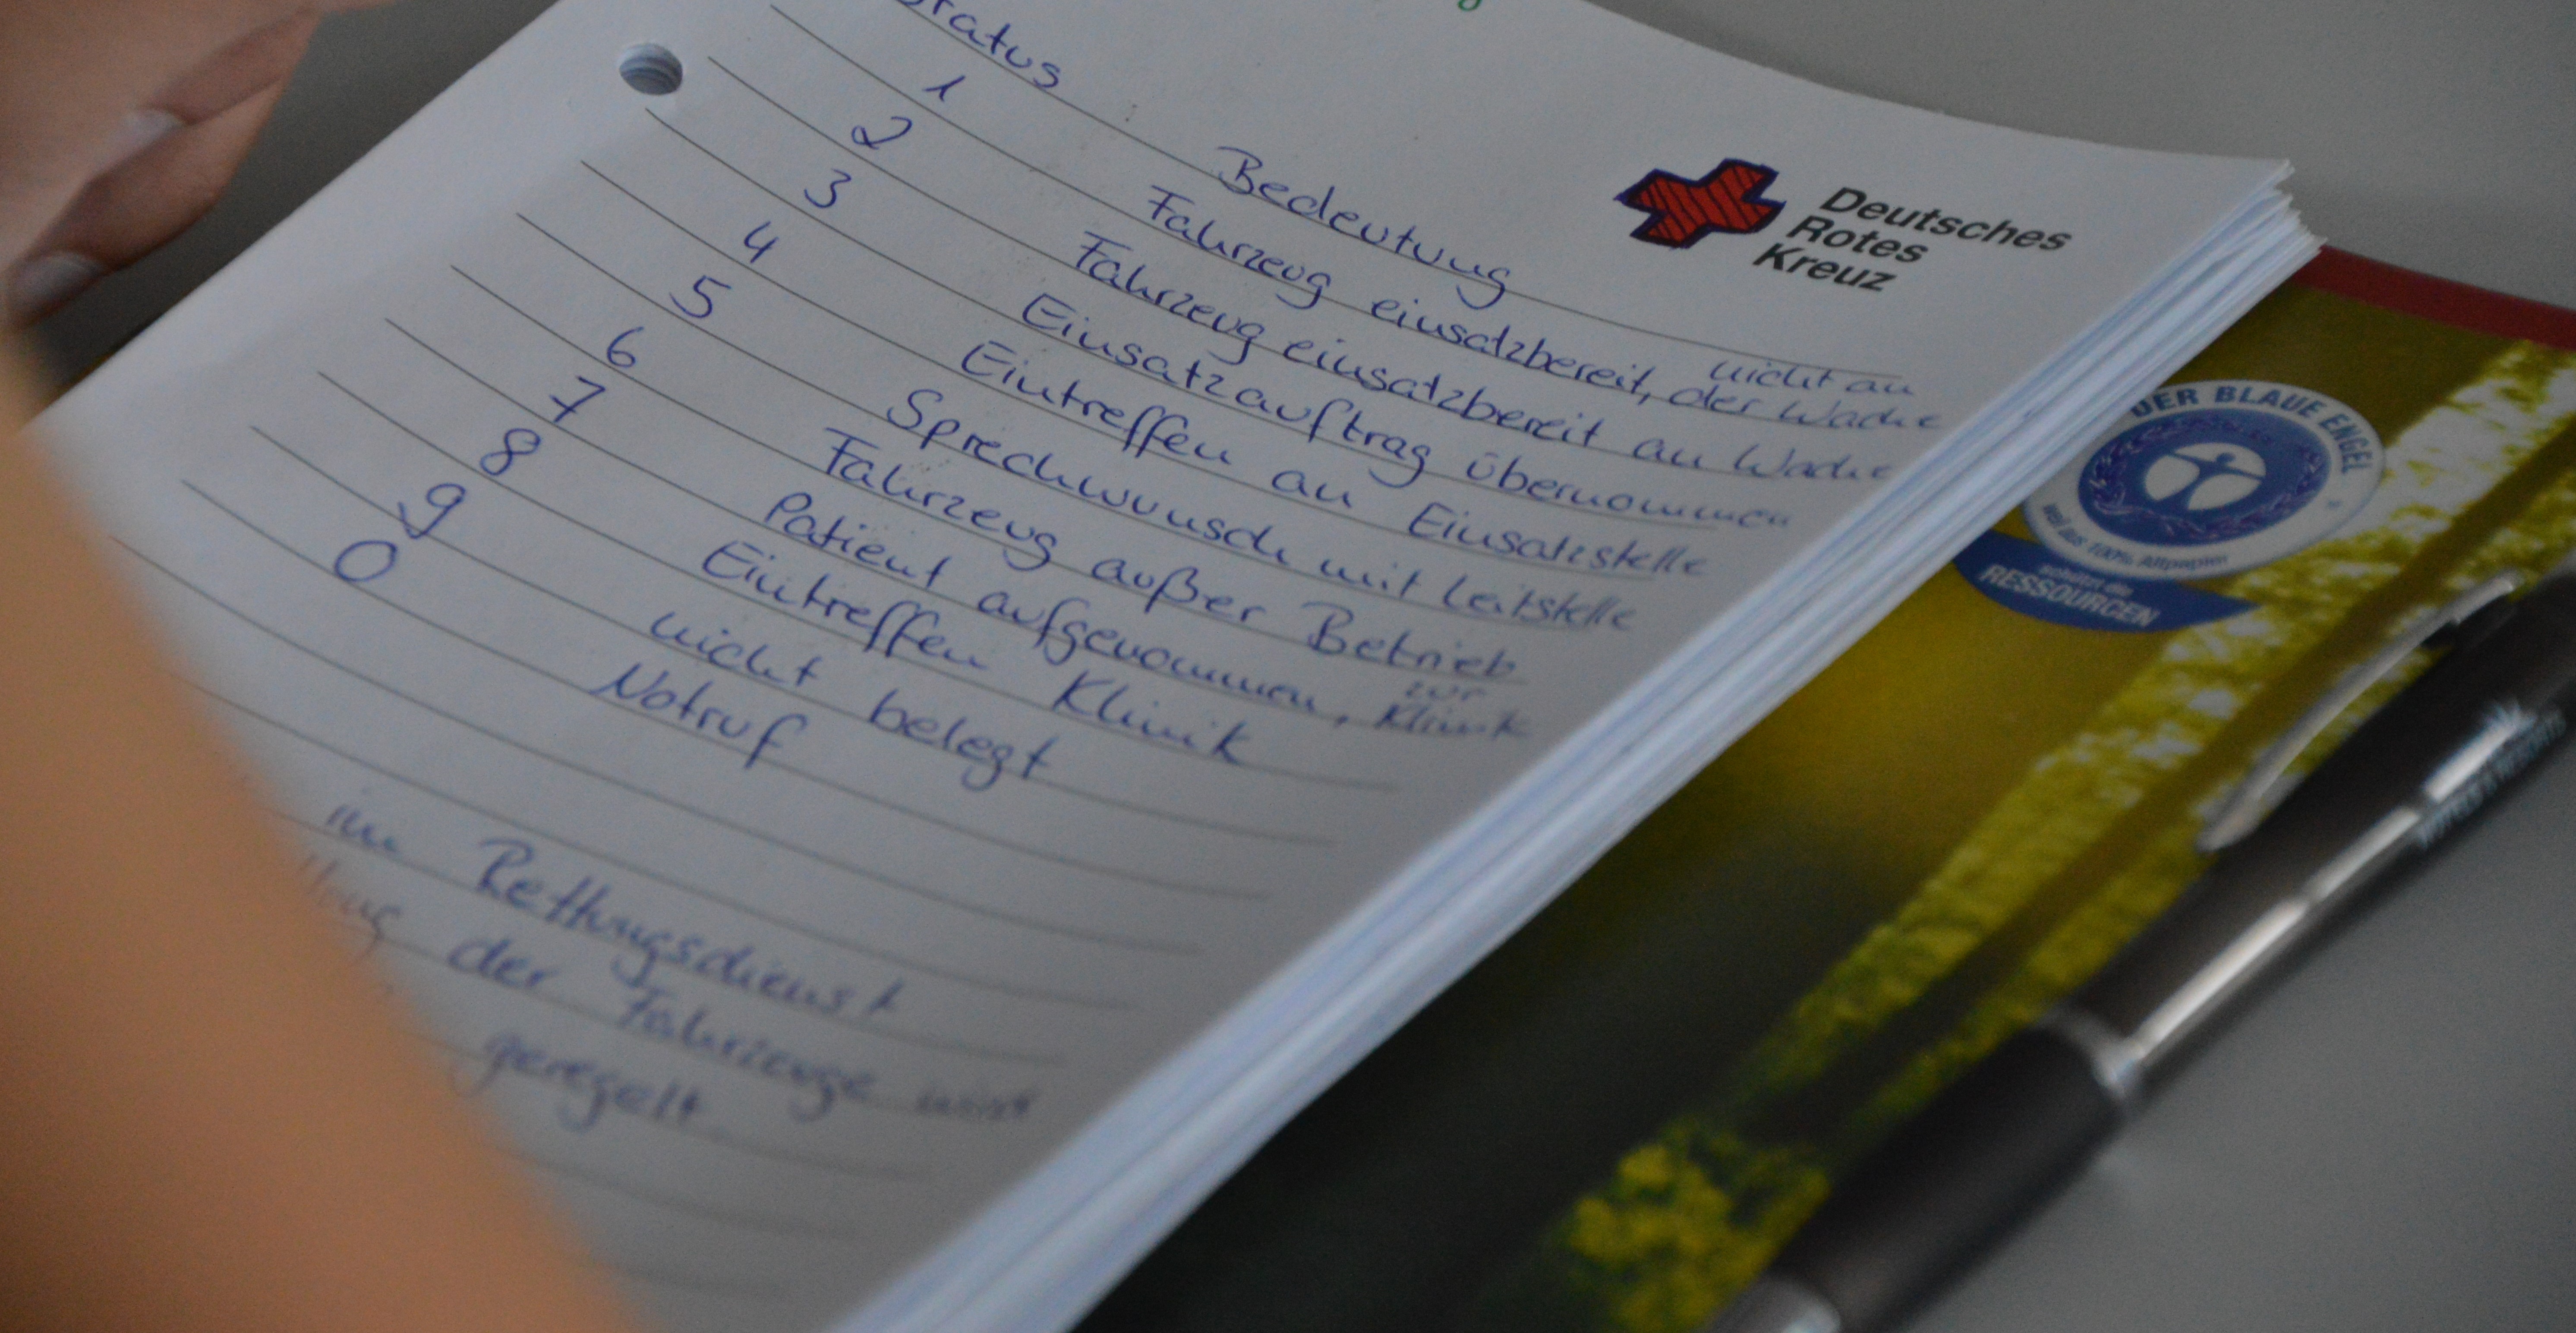 Status Bedeutung
1 Fahrzeug einsatzbereit, nicht an der Wache
2 Fahrzeug einsatzbereit an Wache
3 Einsatzauftrag übernommen
4 Eintreffen an Einsatzstelle
5 Sprechwunsch mit Leitstelle
6 Fahrzeug außer Betrieb
7 Patient aufgenommen, zur Klinik
8 Eintreffen Klinik
9 nicht belegt
0 Notruf
im Rettungsdienst
der Fahrzeuge wird
geregelt.
Deutsches
Rotes
Kreuz
DER BLAUE ENGEL
weil aus 100% Altpapier
schützt die
RESSOURCEN